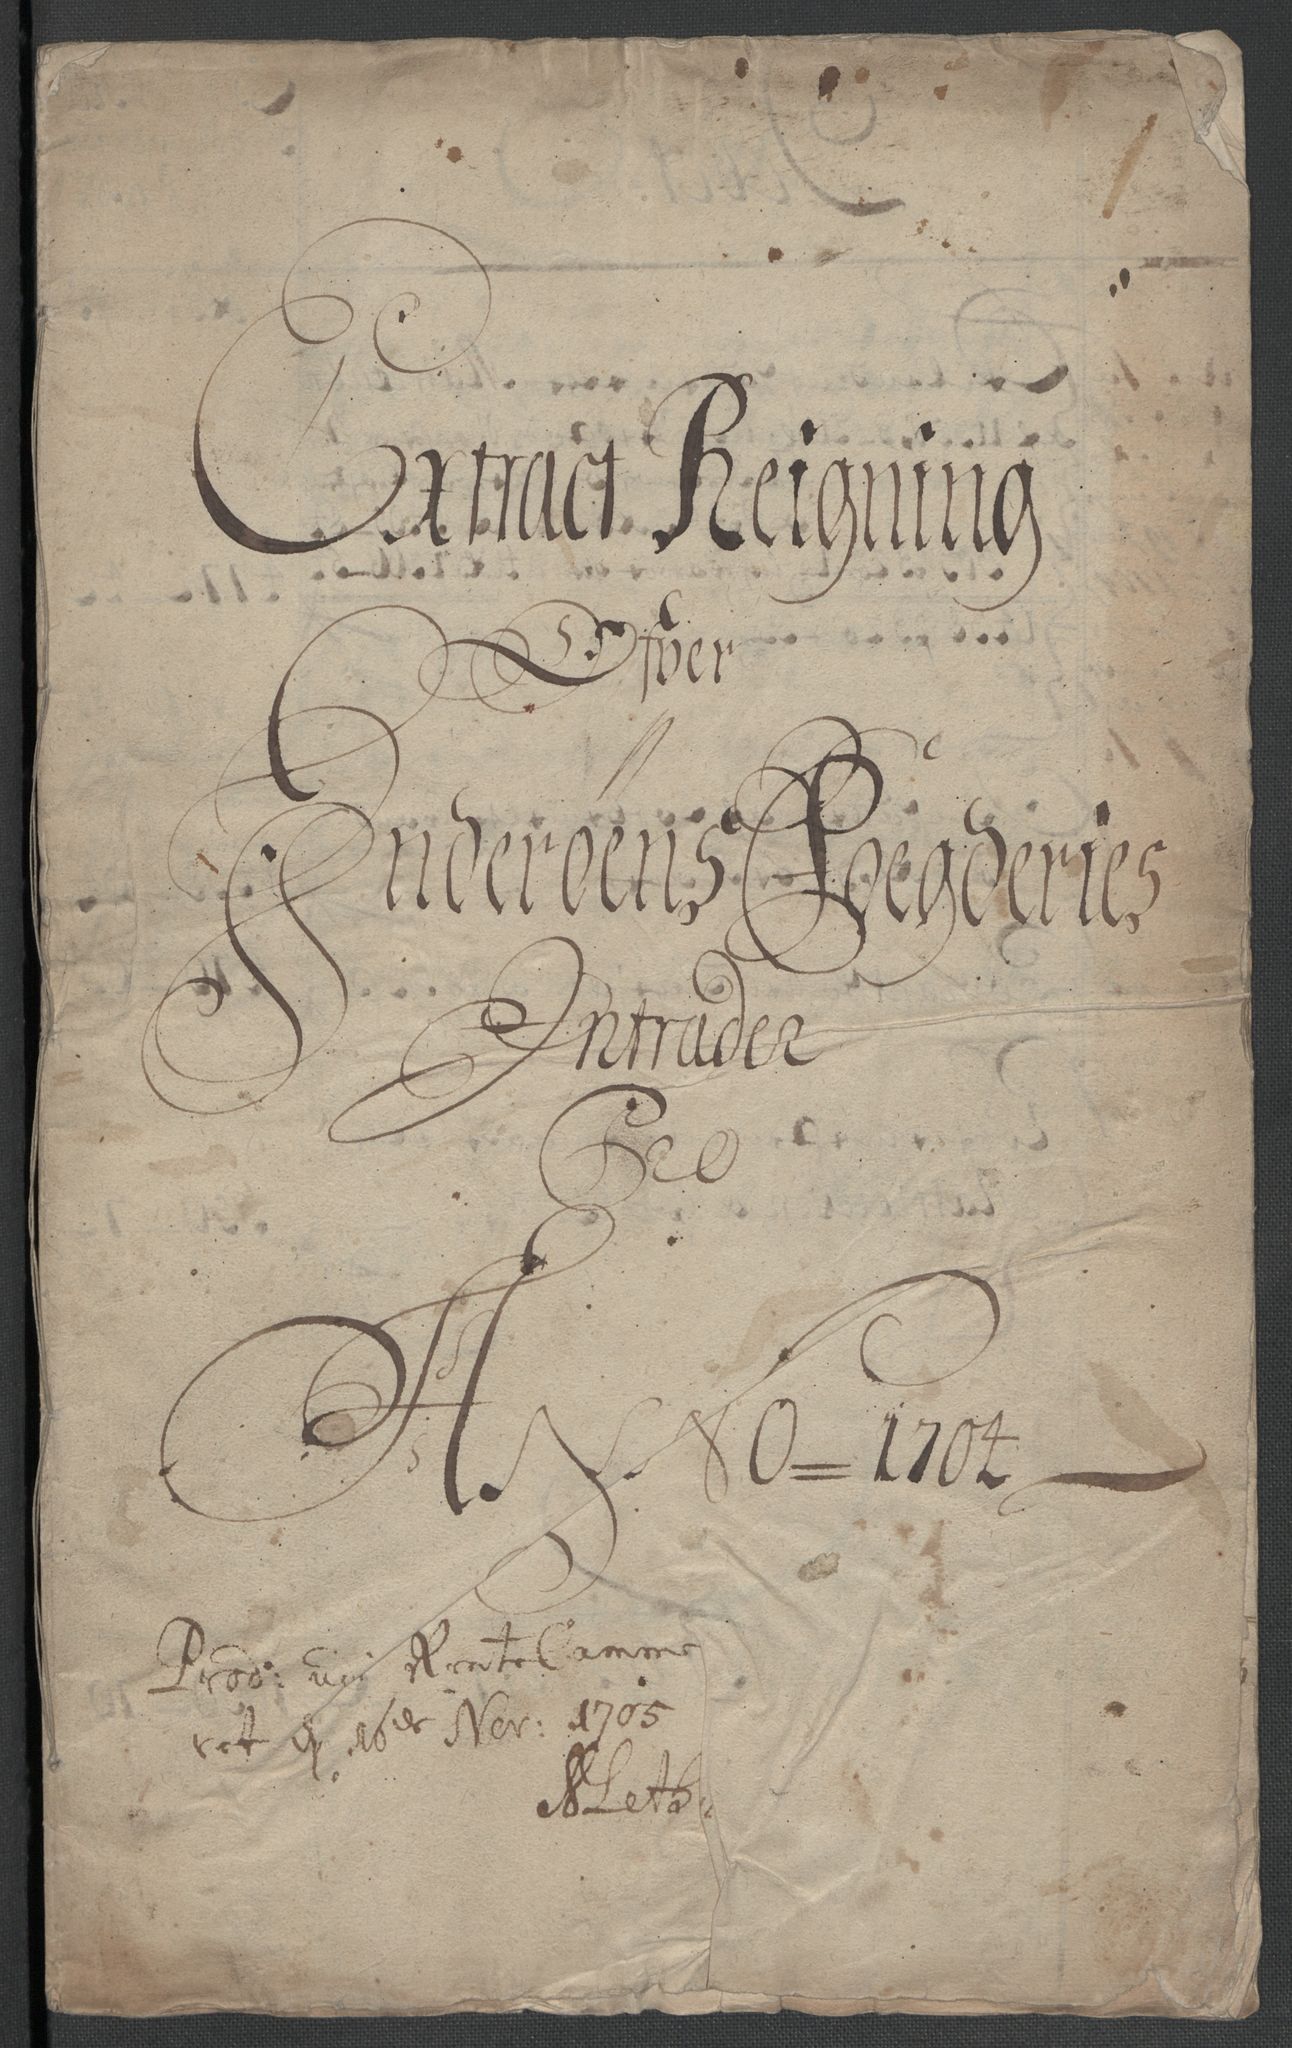 Extract Reigning
Ofver
Inderøens Foegderies
Intrader
Pro
ANNO = 1704
Prod: udi Rente Camme
ret d 16de Nov: 1705